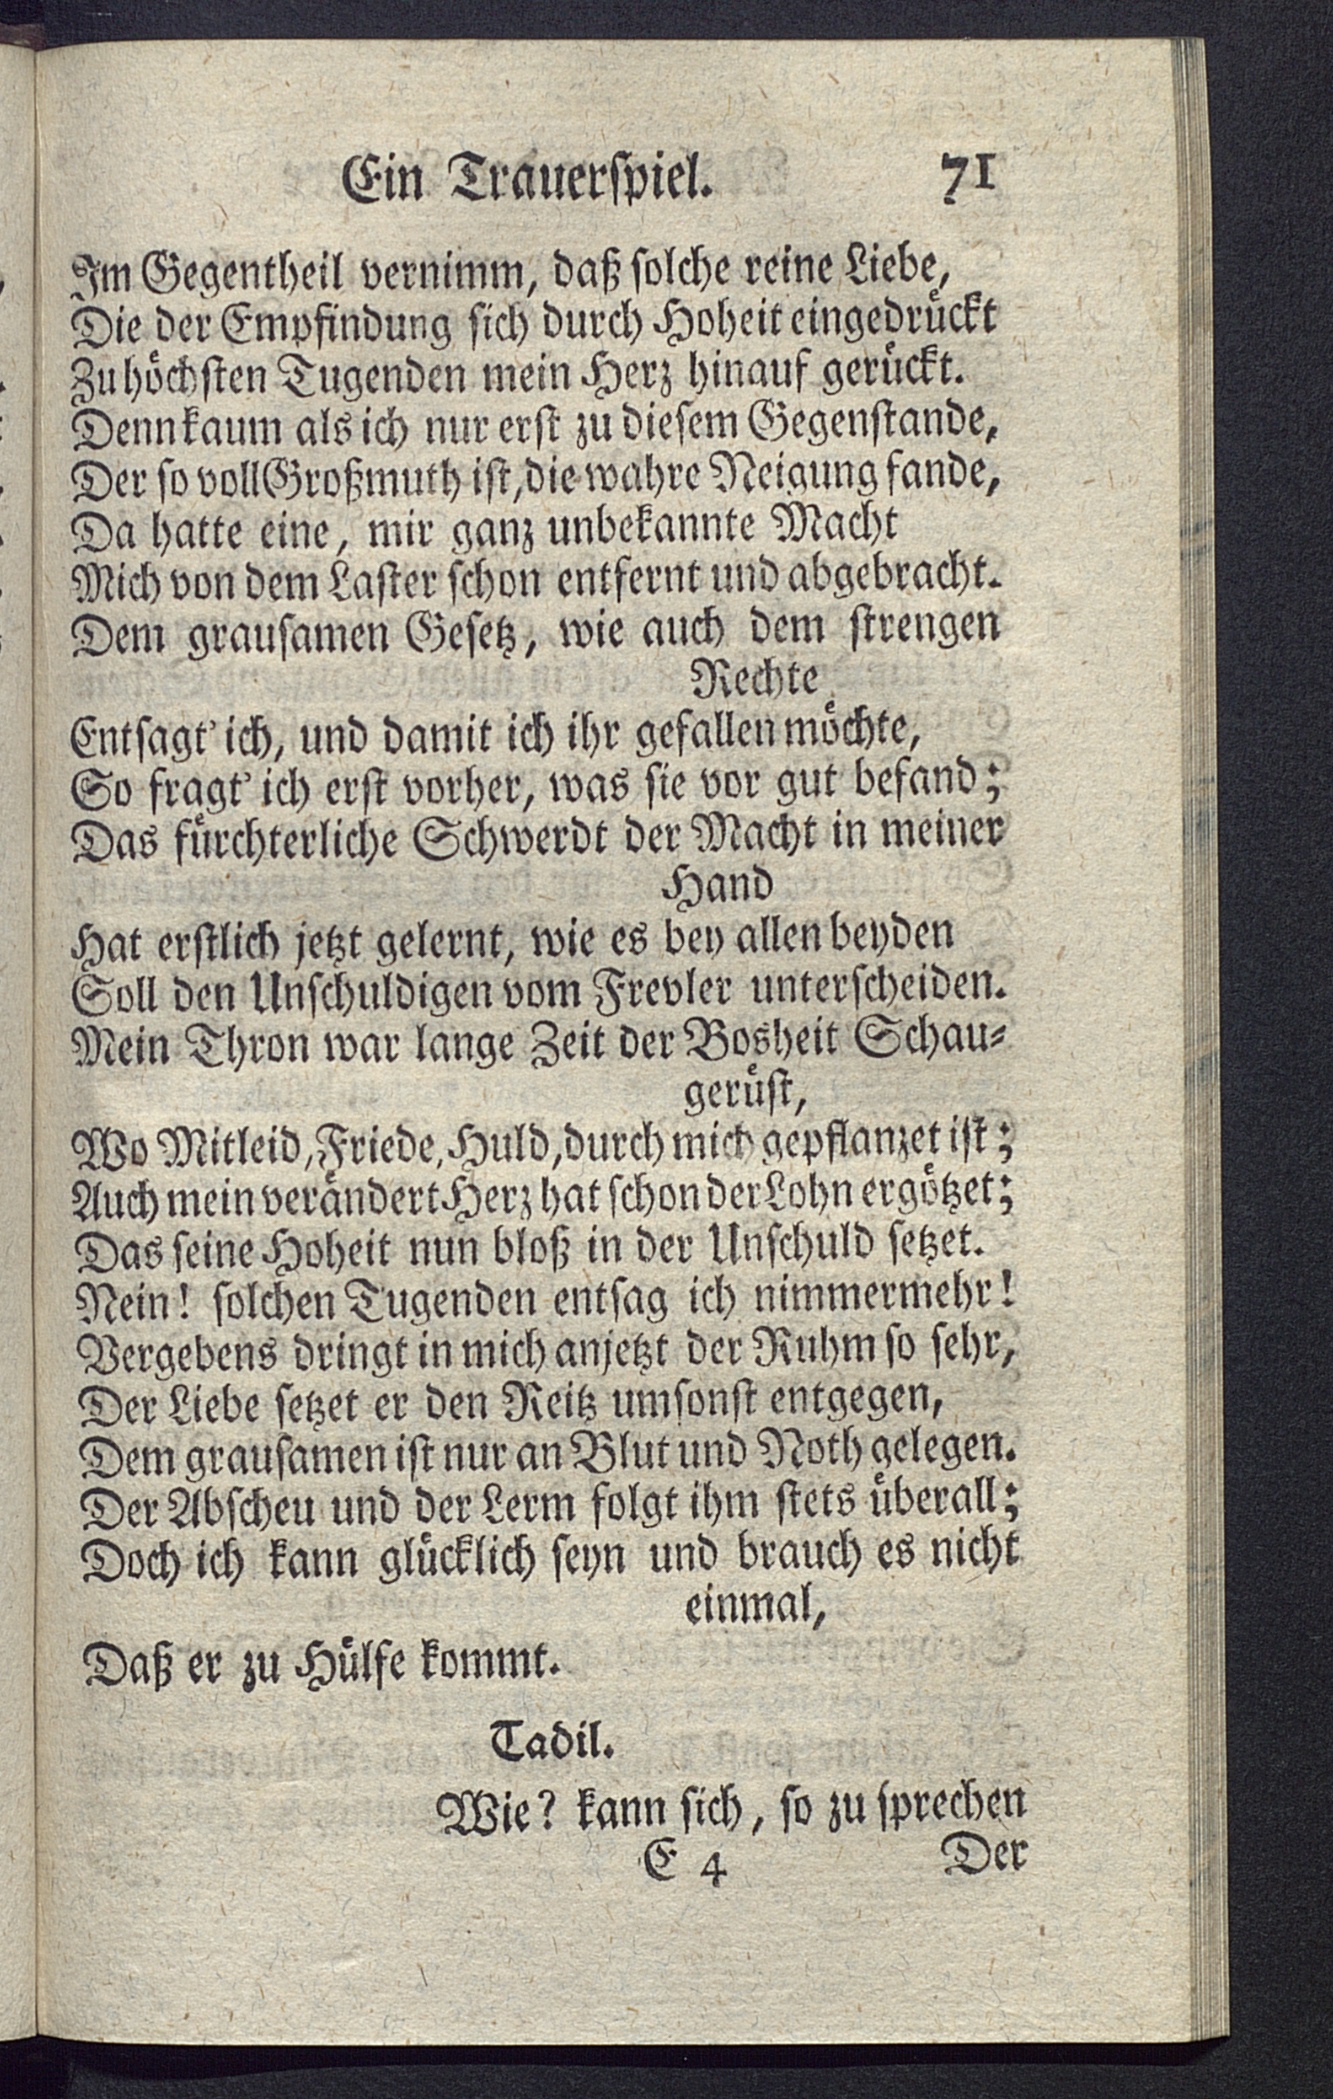 Ein Trauerspiel. 71
Im Gegentheil vernimm, daß solche reine Liebe,
Die der Empfindung sich durch Hoheit eingedrückt
Zu höchsten Tugenden mein Herz hinauf gerückt.
Denn kaum als ich nur erst zu diesem Gegenstande,
Der so voll Großmuth ist, die wahre Neigung fande,
Da hatte eine, mir ganz unbekannte Macht
Mich von dem Laster schon entfernt und abgebracht.
Dem grausamen Gesetz, wie auch dem strengen
Rechte
Entsagt' ich, und damit ich ihr gefallen möchte,
So fragt' ich erst vorher, was sie vor gut befand;
Das fürchterliche Schwerdt der Macht in meiner
Hand
Hat erstlich jetzt gelernt, wie es bey allen beyden
Soll den Unschuldigen vom Frevler unterscheiden.
Mein Thron war lange Zeit der Bosheit Schau-
gerüst,
Wo Mitleid, Friede, Huld, durch mich gepflanzet ist;
Auch mein verändert Herz hat schon der Lohn ergötzet;
Das seine Hoheit nun bloß in der Unschuld setzet.
Nein! solchen Tugenden entsag ich nimmermehr!
Vergebens dringt in mich anjetzt der Ruhm so sehr,
Der Liebe setzet er den Reitz umsonst entgegen,
Dem grausamen ist nur an Blut und Noth gelegen.
Der Abscheu und der Lerm folgt ihm stets überall;
Doch ich kann glücklich seyn und brauch es nicht
einmal,
Daß er zu Hülfe kommt.
Tadil.
Wie? kann sich, so zu sprechen
E 4 Der